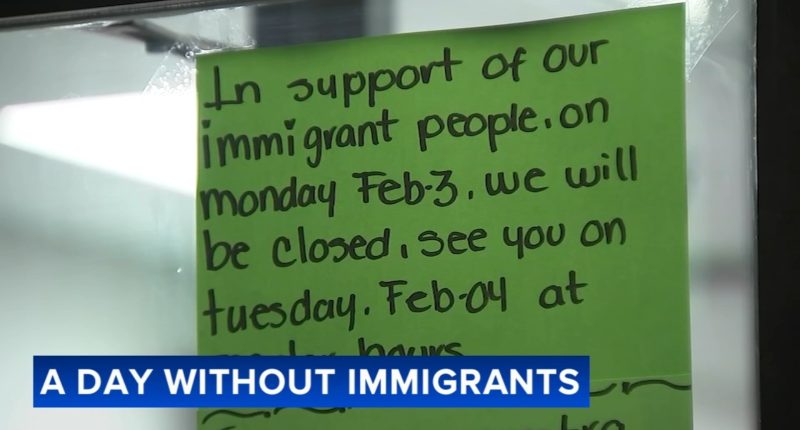 In support of our
immigrant people, on
monday Feb-3, we will
be closed, see you on
tuesday. Feb-04 at
hours
A DAY WITHOUT IMMIGRANTS